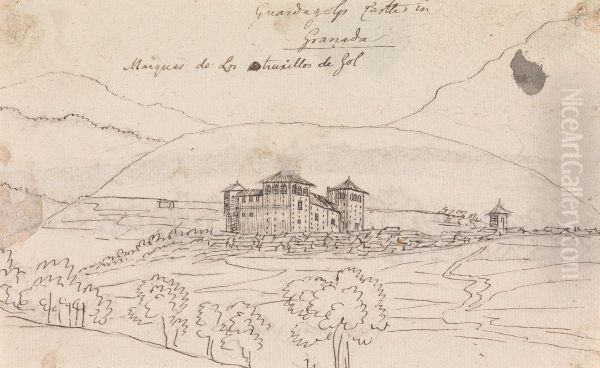 Guardagolfs Castle in
Granada
Marques de Los truxillos de Gol
NiceArtGallery.com